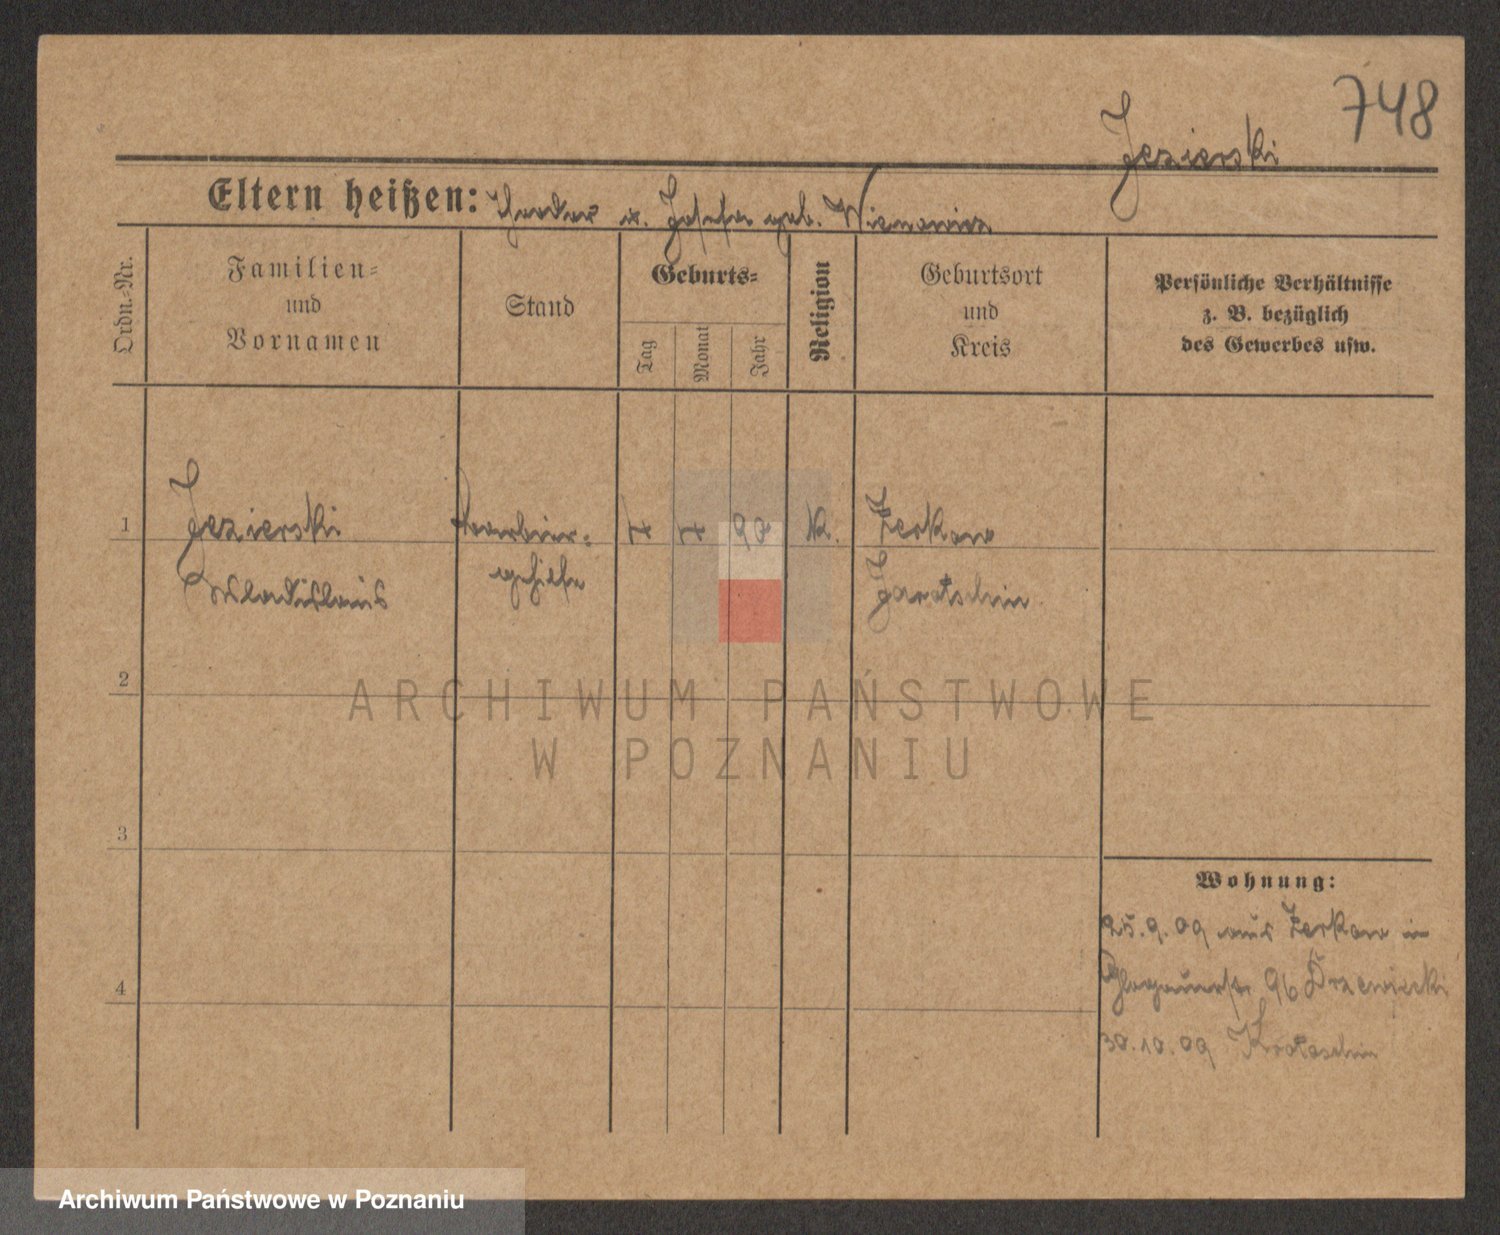 748
Jezierski
Eltern heißen: u. Josefa geb.
Ordn.-Nr.
Familien-
und
Vornamen
Stand
Geburts-
Tag
Monat
Jahr
Religion
Geburtsort
und
Kreis
Persönliche Verhältnisse
z. B. bezüglich
des Gewerbes usw.
1
Jezierski
Barbier-
90
K.
Zerkow
Wladislaus
gehilfe
Jarotschin
2
ARCHIWUM PAŃSTWOWE
W POZNANIU
3
Wohnung:
25.9.09 aus Zerkow in
Glogauerstr 96 Drzewiecki
4
30.10.09 Krotoschin
Archiwum Państwowe w Poznaniu